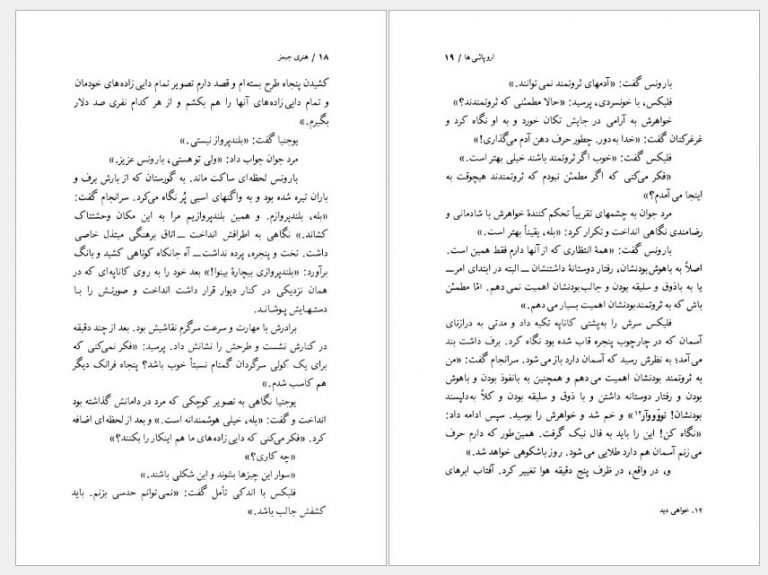 ۱۸ / هنری جیمز
کشیدن پنجاه طرح بسته‌ام و قصد دارم تصویر تمام دایی‌زاده‌های خودمان
و تمام دایی‌زاده‌های آنها را هم بکشم و از هر کدام نفری صد دلار
بگیرم.»
یوجنیا گفت: «بلندپرواز نیستی.»
مرد جوان جواب داد: «ولی تو هستی، بارونس عزیز.»
بارونس لحظه‌ای ساکت ماند. به گورستان که از بارش برف و
باران تیره شده بود و به واگنهای اسبی پُر نگاه می‌کرد. سرانجام گفت:
«بله، بلندپروازم. و همین بلندپروازیم مرا به این مکان وحشتناک
کشاند.» نگاهی به اطرافش انداخت ــ اتاق برهنگی مبتذل خاصی
داشت. تخت و پنجره، پرده نداشت ــ آه جانکاه کوتاهی کشید و بانگ
برآورد: «بلندپروازی بیچارهٔ بینوا!» بعد خود را به روی کاناپه‌ای که در
همان نزدیکی در کنار دیوار قرار داشت انداخت و صورتش را با
دستهایش پوشاند.
برادرش با مهارت و سرعت سرگرم نقاشیش بود. بعد از چند دقیقه
در کنارش نشست و طرحش را نشانش داد. پرسید: «فکر نمی‌کنی که
برای یک کولی سرگردان گمنام نسبتاً خوب باشد؟ پنجاه فرانک دیگر
هم کاسب شدم.»
یوجنیا نگاهی به تصویر کوچکی که مرد در دامانش گذاشته بود
انداخت و گفت: «بله، خیلی هوشمندانه است.» و بعد از لحظه‌ای اضافه
کرد. «فکر می‌کنی که دایی‌زاده‌های ما هم اینکار را بکنند؟»
«چه کاری؟»
«سوار این چیزها بشوند و این شکلی باشند.»
فلیکس با اندکی تأمل گفت: «نمی‌توانم حدسی بزنم. باید
کشفش جالب باشد.»
اروپائی‌ها / ۱۹
بارونس گفت: «آدمهای ثروتمند نمی‌توانند.»
فلیکس، با خونسردی، پرسید: «حالا مطمئنی که ثروتمندند؟»
خواهرش به آرامی در جایش تکان خورد و به او نگاه کرد و
غرغرکنان گفت: «خدا به‌دور. چطور حرف دهن آدم می‌گذاری!»
فلیکس گفت: «خوب اگر ثروتمند باشند خیلی بهتر است.»
«فکر می‌کنی که اگر مطمئن نبودم که ثروتمندند هیچوقت به
اینجا می‌آمدم؟»
مرد جوان به چشمهای تقریباً تحکم‌کنندهٔ خواهرش با شادمانی و
رضامندی نگاهی انداخت و تکرار کرد: «بله، یقیناً بهتر است.»
بارونس گفت: «همهٔ انتظاری که از آنها دارم فقط همین است.
اصلاً به باهوش‌بودنشان، رفتار دوستانهٔ داشتنشان ــ البته در ابتدای امر ــ
یا به باذوق و سلیقه بودن و جالب‌بودنشان اهمیت نمی‌دهم. امّا مطمئن
باش که به ثروتمندبودنشان اهمیت بسیار می‌دهم.»
فلیکس سرش را به‌پشتی کاناپه تکیه داد و مدتی به درازنای
آسمان که در چارچوب پنجره قاب شده بود نگاه کرد. برف داشت بند
می‌آمد؛ به نظرش رسید که آسمان دارد باز می‌شود. سرانجام گفت: «من
به ثروتمند بودنشان اهمیت می‌دهم و همچنین به بانفوذ بودن و باهوش
بودن و رفتار دوستانه داشتن و با ذوق و سلیقه بودن و کلاً به‌دلپسند
بودنشان! نووِوِوآر۱۲» و خم شد و خواهرش را بوسید. سپس ادامه داد:
«نگاه کن! این را باید به فال نیک گرفت. همین‌طور که دارم حرف
می‌زنم آسمان هم دارد طلایی می‌شود. روز باشکوهی خواهد شد.»
و، در واقع، در ظرف پنج دقیقه هوا تغییر کرد. آفتاب ابرهای
۱۲. خواهی دید